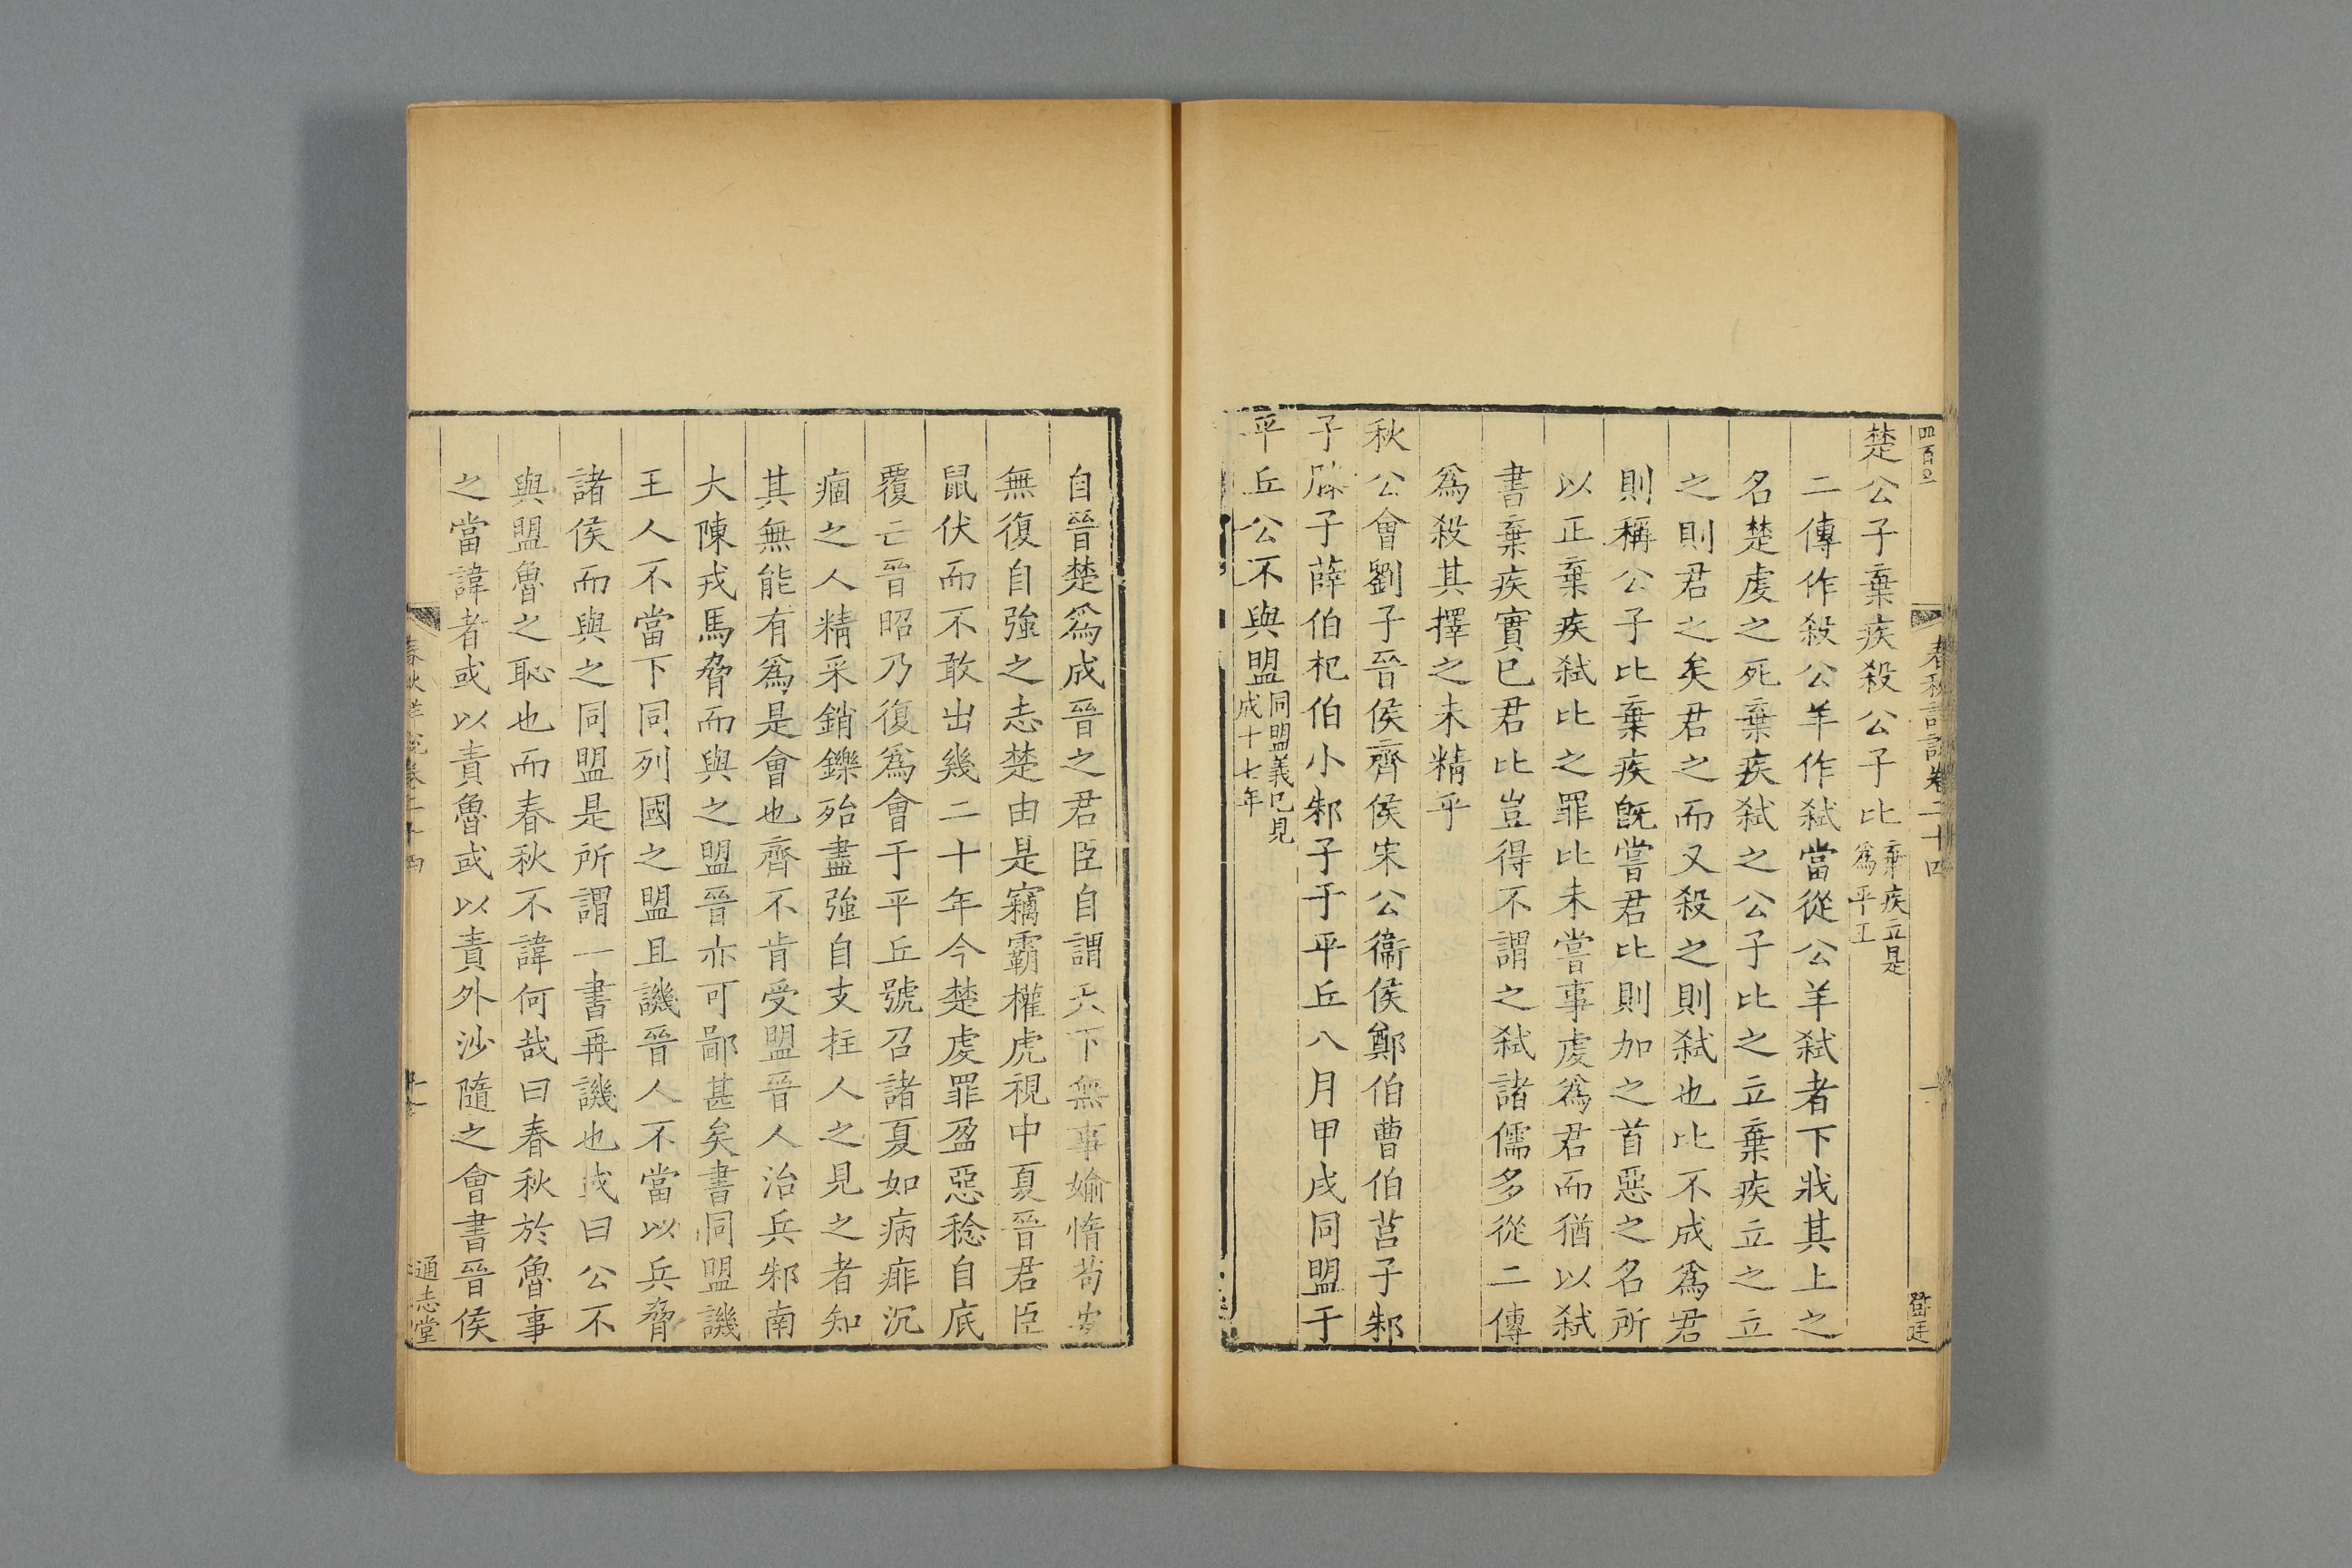 四百〇一
春秋詳說卷二十四
一
登廷
楚公子棄疾殺公子比棄疾立是爲平王
二傳作殺公羊作弑當從公羊弑者下戕其上之
名楚虔之死棄疾弑之公子比之立棄疾立之立
之則君之矣君之而又殺之則弑也比不成爲君
則稱公子比棄疾旣嘗君比則加之首惡之名所
以正棄疾弑比之罪比未嘗事虔爲君而猶以弑
書棄疾實已君比豈得不謂之弑諸儒多從二傳
爲殺其擇之未精乎
秋公會劉子晉侯齊侯宋公衞侯鄭伯曹伯莒子邾
子滕子薛伯杞伯小邾子于平丘八月甲戌同盟于
平丘公不與盟同盟義已見成十七年
自晉楚爲成晉之君臣自謂天下無事婾惰苟安
無復自強之志楚由是竊霸權虎視中夏晉君臣
鼠伏而不敢出幾二十年今楚虔罪盈惡稔自底
覆亡晉昭乃復爲會于平丘號召諸夏如病痱沉
痼之人精采銷鑠殆盡強自支拄人之見之者知
其無能有爲是會也齊不肯受盟晉人治兵邾南
大陳戎馬脅而與之盟晉亦可鄙甚矣書同盟譏
王人不當下同列國之盟且譏晉人不當以兵脅
諸侯而與之同盟是所謂一書再譏也或曰公不
與盟魯之恥也而春秋不諱何哉曰春秋於魯事
之當諱者或以責魯或以責外沙隨之會書晉侯
春秋詳說卷二十四
通志堂